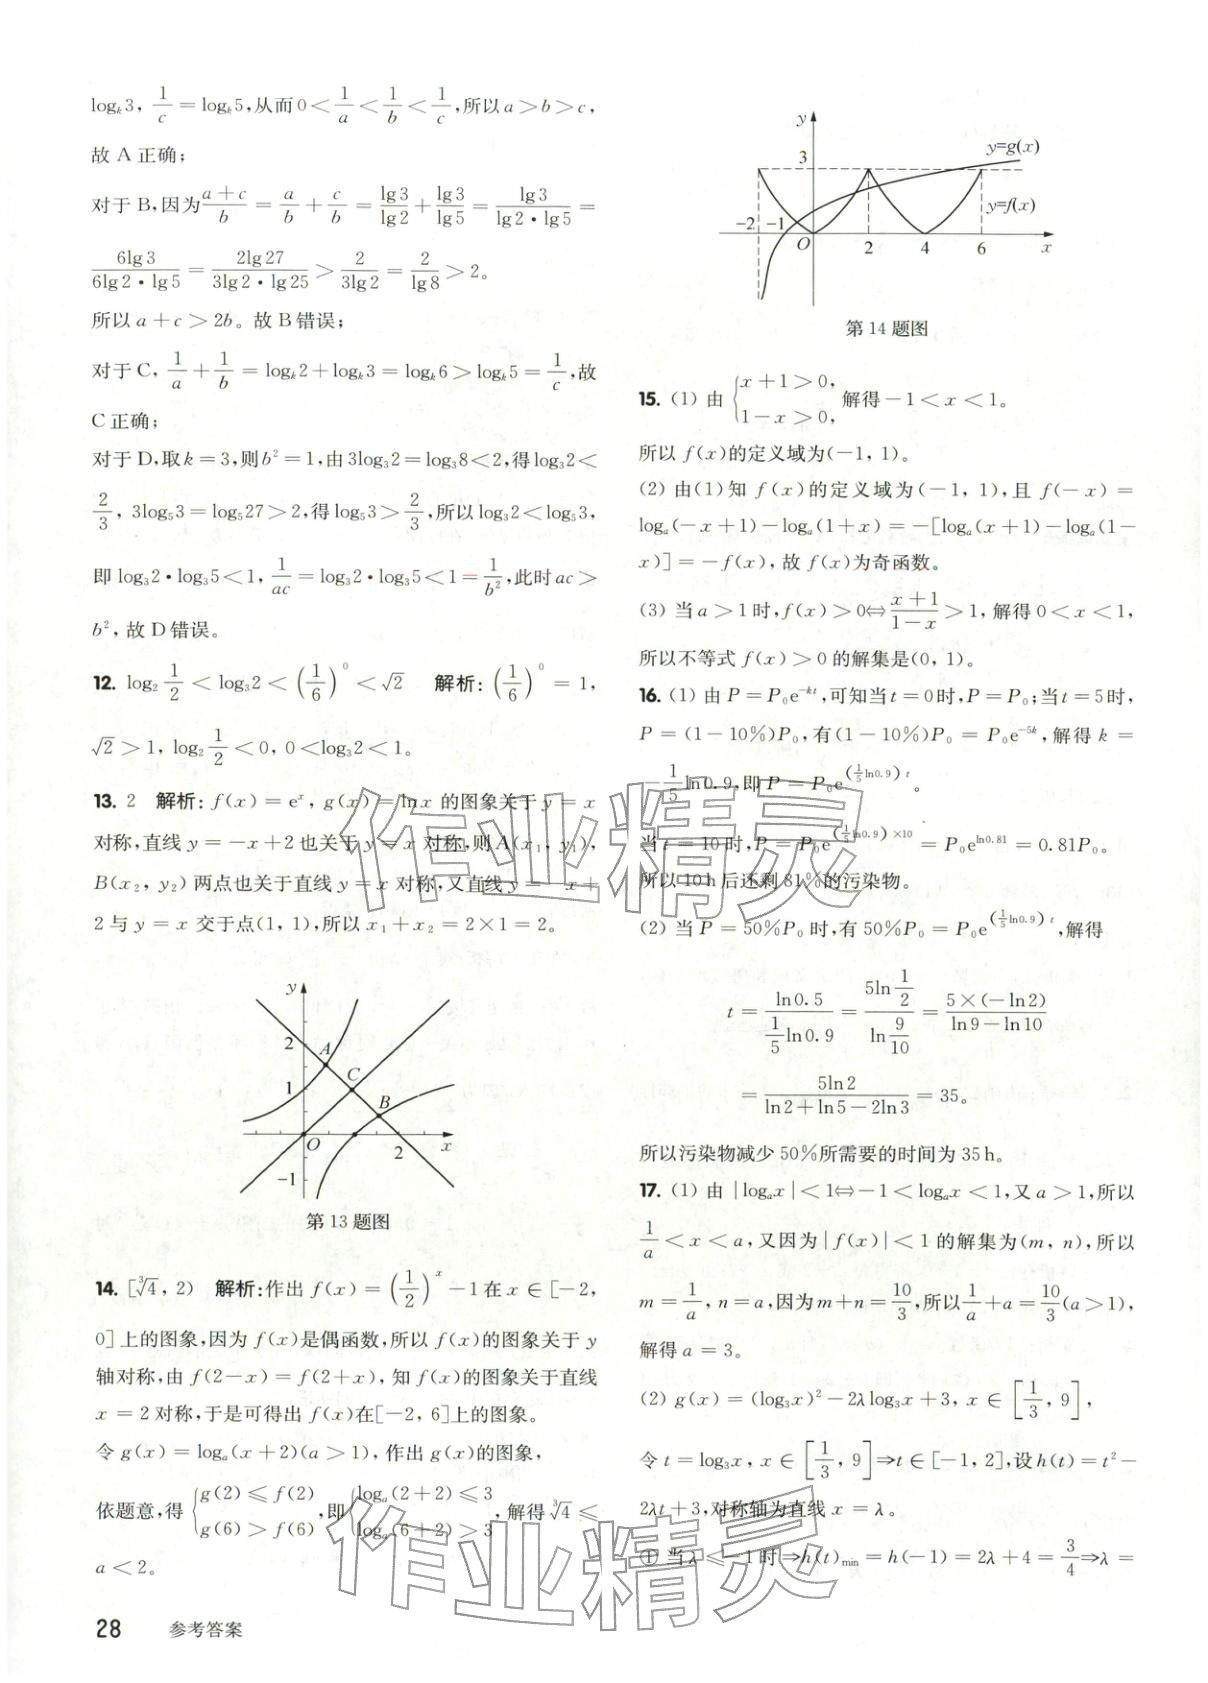 logₖ3, 1/c = logₖ5,从而0 < 1/a < 1/b < 1/c,所以 a > b > c,
故 A 正确;
对于 B,因为 (a+c)/b = a/b + c/b = lg3/lg2 + lg3/lg5 = lg3/(lg2·lg5) =
6lg3/(6lg2·lg5) = 2lg27/(3lg2·lg25) > 2/(3lg2) = 2/lg8 > 2。
所以 a+c > 2b。故 B 错误;
对于 C, 1/a + 1/b = logₖ2 + logₖ3 = logₖ6 > logₖ5 = 1/c,故
C 正确;
对于 D,取 k = 3,则 b² = 1,由 3log₃2 = log₃8 < 2,得 log₃2 <
2/3, 3log₅3 = log₅27 > 2,得 log₅3 > 2/3,所以 log₃2 < log₅3,
即 log₃2·log₃5 < 1, 1/ac = log₃2·log₃5 < 1 = 1/b²,此时 ac >
b²,故 D 错误。
12. log₂ 1/2 < log₃2 < (1/6)⁰ < √2 解析: (1/6)⁰ = 1,
√2 > 1, log₂ 1/2 < 0, 0 < log₃2 < 1。
13. 2 解析: f(x) = eˣ, g(x) = lnx 的图象关于 y = x
对称,直线 y = −x+2 也关于 y = x 对称,则 A(x₁, y₁),
B(x₂, y₂) 两点也关于直线 y = x 对称,又直线 y = − x +
2 与 y = x 交于点(1, 1),所以 x₁ + x₂ = 2×1 = 2。
y
2 A
1 C
B
O 2 x
−1
第 13 题图
14. [∛4, 2) 解析:作出 f(x) = (1/2)ˣ − 1 在 x ∈ [−2,
0] 上的图象,因为 f(x)是偶函数,所以 f(x)的图象关于 y
轴对称,由 f(2−x) = f(2+x), 知 f(x)的图象关于直线
x = 2 对称,于是可得出 f(x)在[−2, 6]上的图象。
令 g(x) = logₐ(x+2)(a > 1), 作出 g(x)的图象,
依题意,得 {g(2) ≤ f(2) g(6) > f(6),即 {logₐ(2+2) ≤ 3 logₐ(6+2) > 3, 解得 ∛4 ≤
a < 2。
28 参考答案
y
3 y=g(x)
y=f(x)
−2 −1 O 2 4 6 x
第 14 题图
15. (1) 由 {x+1 > 0, 1−x > 0, 解得 −1 < x < 1。
所以 f(x)的定义域为(−1, 1)。
(2) 由(1)知 f(x)的定义域为(−1, 1),且 f(−x) =
logₐ(−x+1) − logₐ(1+x) = −[logₐ(x+1) − logₐ(1−
x)] = −f(x), 故 f(x)为奇函数。
(3) 当 a > 1 时, f(x) > 0⇔(x+1)/(1−x) > 1, 解得 0 < x < 1,
所以不等式 f(x) > 0 的解集是(0, 1)。
16. (1) 由 P = P₀e^(−kt),可知当 t = 0 时, P = P₀; 当 t = 5 时,
P = (1−10%)P₀,有(1−10%)P₀ = P₀e^(−5k),解得 k =
−1/5 ln0.9,即 P = P₀e^((1/5 ln0.9)t)。
当 t = 10 时, P = P₀e^((1/5 ln0.9)×10) = P₀e^(ln0.81) = 0.81P₀。
所以 10 h 后还剩 81%的污染物。
(2) 当 P = 50%P₀ 时,有 50%P₀ = P₀e^((1/5 ln0.9)t),解得
t = ln0.5/(1/5 ln0.9) = (5ln 1/2)/(ln 9/10) = 5×(−ln2)/(ln9−ln10)
= 5ln2/(ln2+ln5−2ln3) = 35。
所以污染物减少 50%所需要的时间为 35 h。
17. (1) 由 |logₐx| < 1⇔−1 < logₐx < 1,又 a > 1,所以
1/a < x < a,又因为 |f(x)| < 1 的解集为(m, n),所以
m = 1/a, n = a,因为 m+n = 10/3,所以 1/a + a = 10/3 (a > 1),
解得 a = 3。
(2) g(x) = (log₃x)² − 2λlog₃x + 3, x ∈ [1/3, 9],
令 t = log₃x, x ∈ [1/3, 9]⇒t ∈ [−1, 2],设 h(t) = t² −
2λt + 3,对称轴为直线 x = λ。
① 当 λ ≤ −1 时⇒h(t)min = h(−1) = 2λ + 4 = 3/4⇒λ =
作业精灵
作业精灵